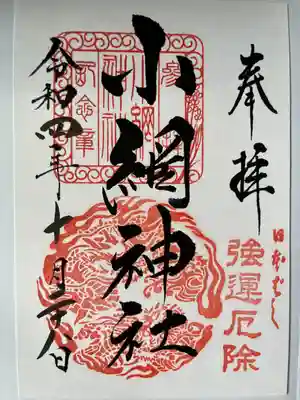 奉拝
日本ばし
強運厄除
小網神社
令和四年十月二十八日